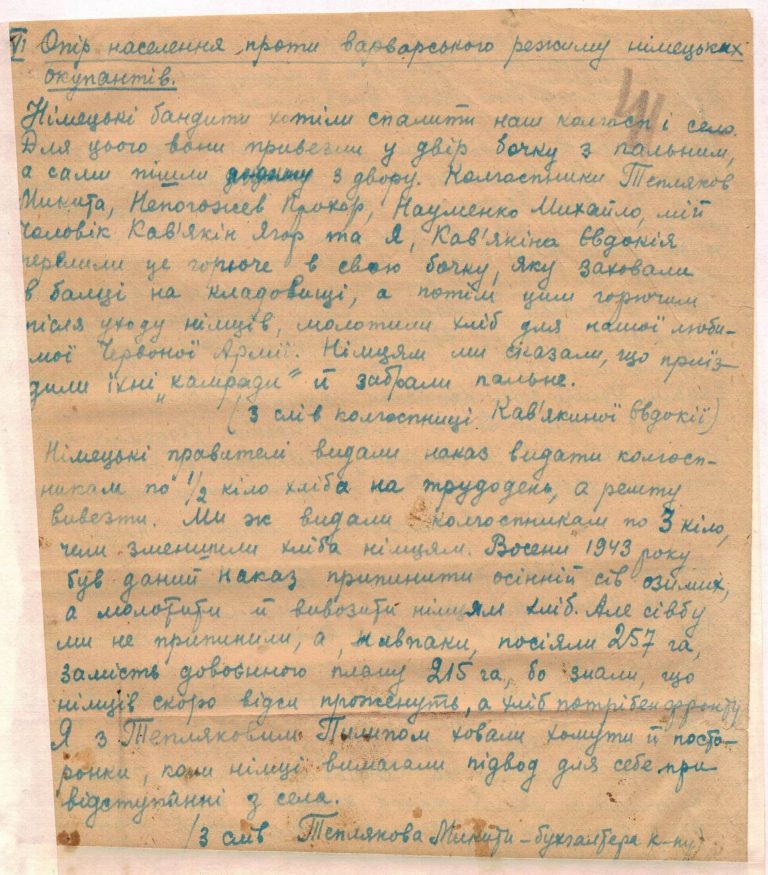 VI Опір населення проти варварського режиму німецьких
окупантів.
Німецькі бандити хотіли спалити наш колгосп і село.
Для цього вони привезли у двір бочку з пальним,
а сами пішли з двору. Колгоспники Тепляков
Микита, Непогожев Прохор, Науменко Михайло, мій
чоловік Кав'якін Ягор та Я, Кав'якіна Євдокія
перелили це горюче в свою бочку, яку заховали
в балці на кладовищі, а потім цим горючим
після уходу німців, молотили хліб для нашої люби-
мої Червоної Армії. Німцям ми сказали, що приїз-
дили їхні „камради" й забрали пальне.
(З слів колгоспниці Кав'якиної Євдокії)
Німецькі правителі видали наказ видати колгосп-
никам по 1/2 кіло хліба на трудодень, а решту
вивезти. Ми ж видали колгоспникам по 3 кіло,
чем зменшили хліба німцям. Восени 1943 року
був даний наказ припинити осінній сів озимих,
а молотити й вивозити німцям хліб. Але сівбу
ми не припинили, а, навпаки, посіяли 257 га,
замість довоєнного плану 215 га, бо знали, що
німців скоро відси проженуть, а хліб потрібен фронту
Я з Тепляковим Пилипом ховали хомути й посто-
ронки, коли німці вимагали підвод для себе при
відступінні з села.
(З слів Теплякова Микити - бухгалтера к-пу)